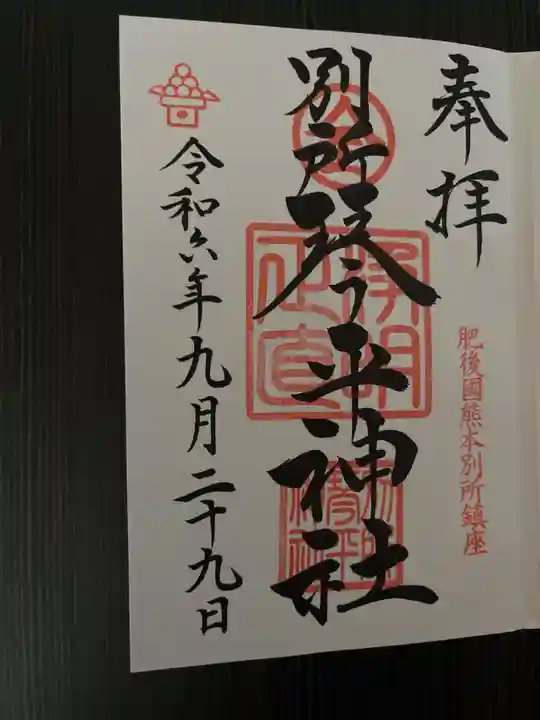 奉拝
肥後国熊本別所鎮座
別所琴平神社
浄明
正直
令和六年九月二十九日